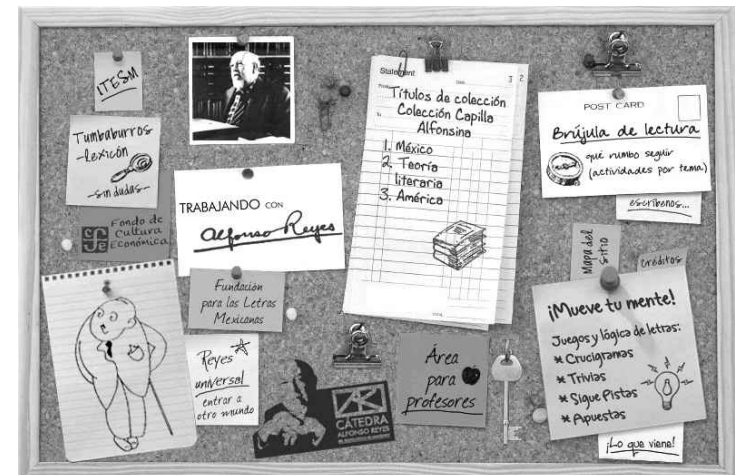 ITESM
Tumbaburros
-lexicón
-sin dudas-
Fondo de
Cultura
Económica
TRABAJANDO CON
Alfonso Reyes
Fundación
para las Letras
Mexicanas
Reyes
universal
entrar a
otro mundo
CÁTEDRA
ALFONSO REYES
Statement
3 2
Títulos de colección
Colección Capilla
Alfonsina
1. México
2. Teoría
literaria
3. América
Área
para
profesores
POST CARD
Brújula de lectura
qué rumbo seguir
(actividades por tema)
escríbenos...
Mapa del
Sitio
Créditos
¡Mueve tu mente!
Juegos y lógica de letras:
* Crucigramas
* Trivias
* Sigue Pistas
* Apuestas
¡Lo que viene!